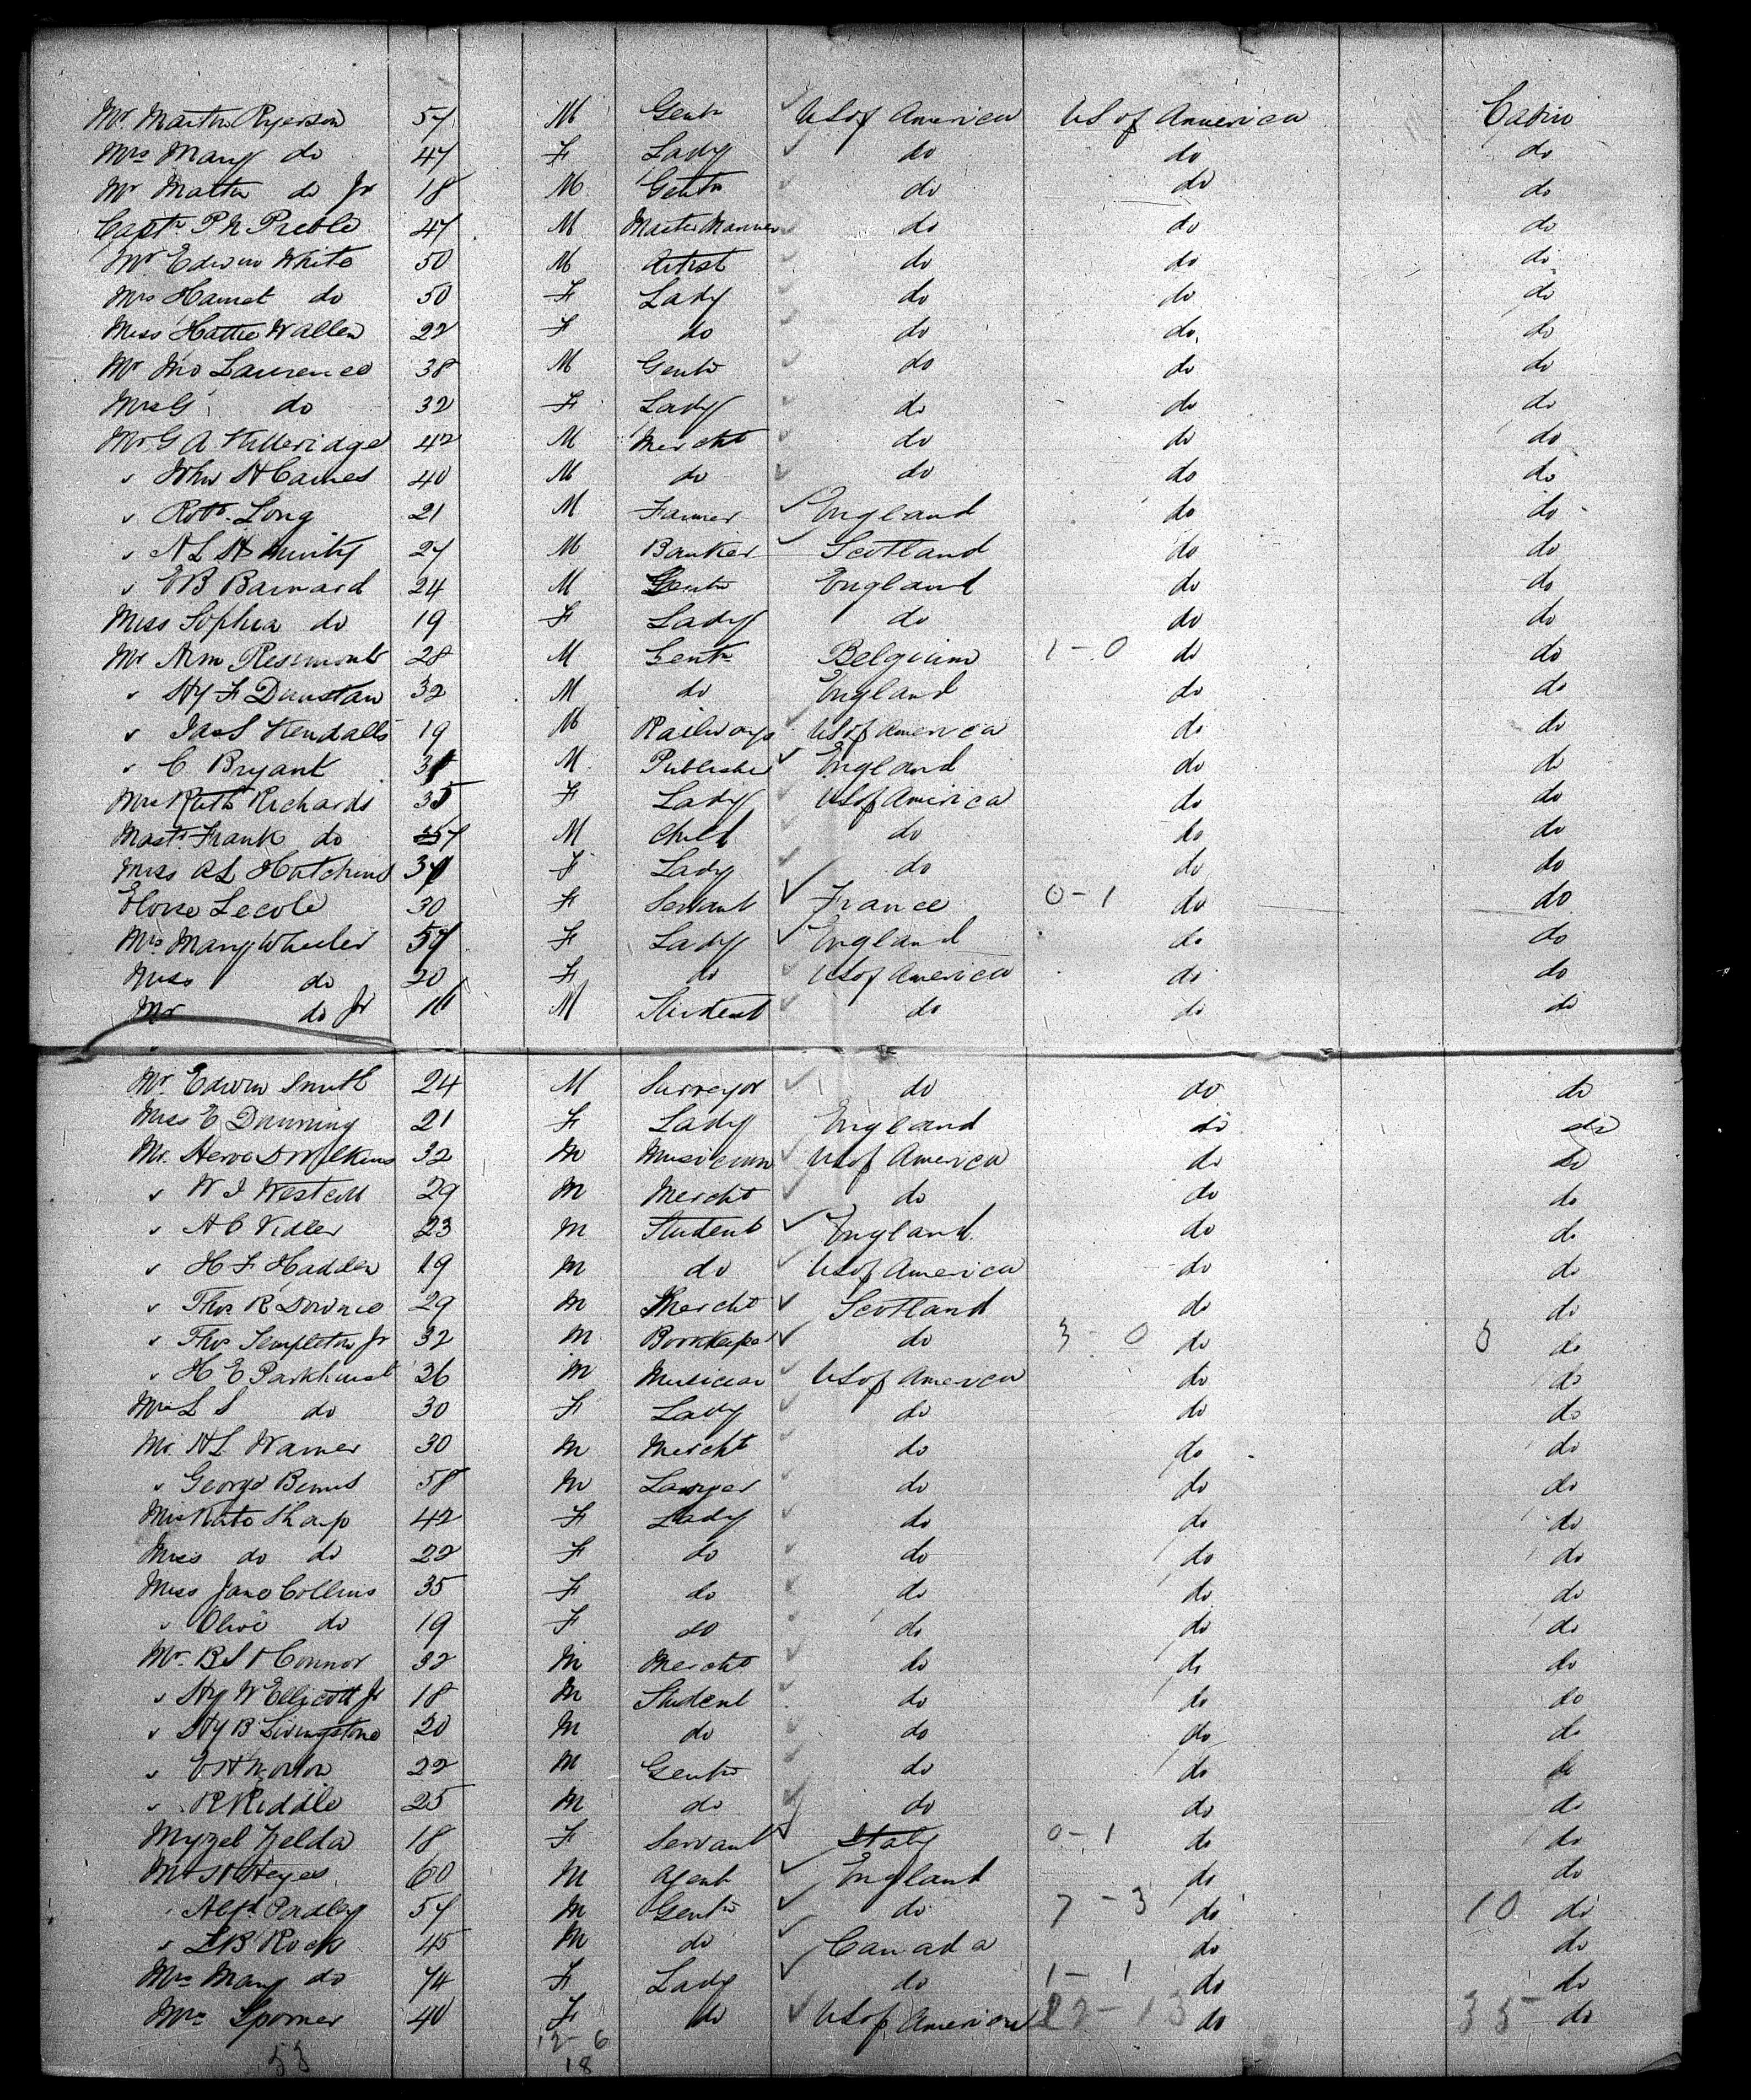 Mr. Martin Ryerson 57 M Gentn US of America US of America Cabin
Mrs Mary do 47 F Lady do do do
Mr Martin do Jr 18 M Gentn do do do
Captn P N Preble 47 M Master Mariner do do do
Mr Edwin White 50 M Artist do do do
Mrs Harriet do 50 F Lady do do do
Miss Hattie Wallen 22 F do do do do
Mr Jno Laurence 38 M Gentn do do do
Mrs G do 32 F Lady do do do
Mr G A Killeridge 42 M Mercht do do do
" John H Carnes 40 M do do do do
" Robt. Long 21 M Farmer England do do
" A L 27 M Banker Scotland do do
" E B Barnard 24 M Gentn England do do
Miss Sophia do 19 F Lady do do do
Mr Arm Resimont 28 M Gentn Belgium 1-0 do do
" Hy F Dunstan 32 M do England do do
" Jas S Kendall 19 M Railways US of America do do
" C Bryant M Publisher England do do
Mrs Ruth Richards 35 F Lady US of America do do
Mastr Frank do 7 M Child do do do
Miss A L Hutchins F Lady do do do
Eloise Lecole 30 F Servant France 0-1 do do
Mrs Mary Wheeler 57 F Lady England do do
Miss do 20 F do US of America do do
Mr do Jr M Student do do do
Mr. Edwin Smith 24 M Surveyor do do do
Miss E Dunning 21 F Lady England do do
Mr. Herve D Wilkins 32 M Musician US of America do do
" W J Westcott 29 M Mercht do do do
" A C Vidler 23 M Student England do do
" H F Hadden 19 M do US of America do do
" Thos R Downie 29 M Mercht Scotland do do
" Thos Templeton Jr 32 M Bookkeeper do 3 0 do 3 do
" H E Parkhurst 26 M Musician US of America do do
Mrs L S do 30 F Lady do do do
Mr. H L Warner 30 M Mercht do do do
" George Bemis 58 M Lawyer do do do
Mrs Kate Sharp 42 F Lady do do do
Miss do do 22 F do do do do
Miss Jane Collins 35 F do do do do
" Olive do 19 F do do do do
Mr. B S Connor 32 M Mercht do do do
" Hy W Ellicott Jr 18 M Student do do do
" Hy B Livingstone 20 M do do do do
" E H Norton 22 M Gentn do do do
" R Riddle 25 M do do do do
Myzel Zelda 18 F Servant Italy 0-1 do do
Mr H Heyes 60 M Agent England do do
" Alfd. Padley 57 M Gentn do 7-3 do 10 do
" L B Rock 45 M do Canada do do
Mrs Mary do 74 F Lady do 1-1 do do
Mrs Spooner 40 F do US of America 22-13 do 35 do
12-6
53 18